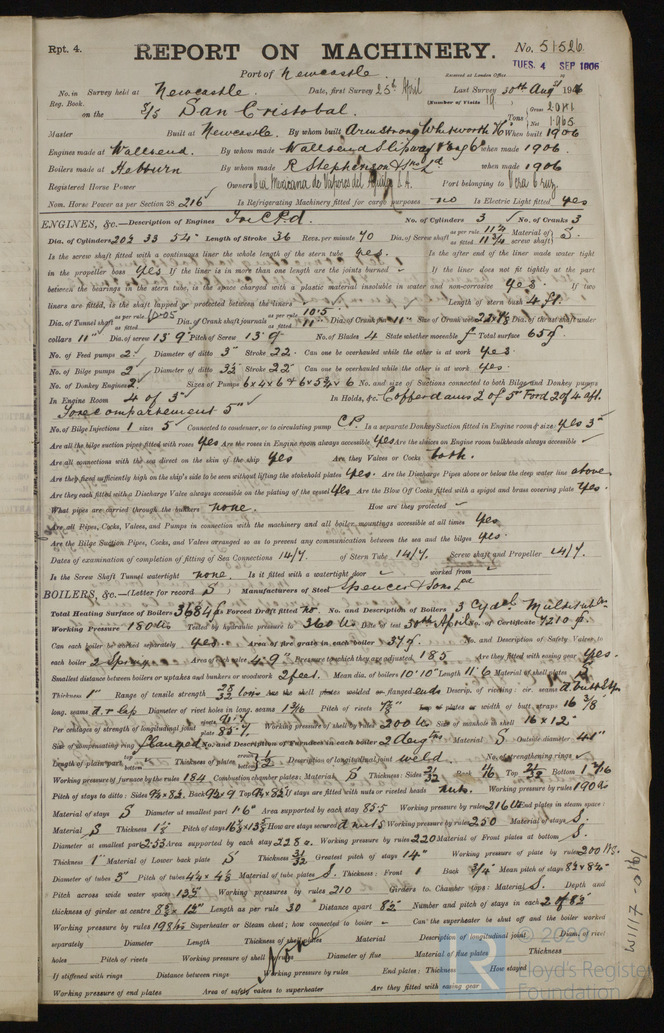 Rpt. 4.
REPORT ON MACHINERY.
No. 51526
TUES. 4 SEP 1906
Port of Newcastle
Received at London Office
No. in Survey held at Newcastle Date, first Survey 25th April Last Survey 30th Augst 1906
Reg. Book. (Number of Visits 19)
on the S/S San Cristobal Tons Gross 2041 Net 1965
Master Built at Newcastle By whom built Armstrong Whitworth & Co When built 1906
Engines made at Wallsend By whom made Wallsend Slipway & Eng Co when made 1906
Boilers made at Hebburn By whom made R Stephenson & Sons Ld when made 1906
Registered Horse Power Owners Cia Mexicana de Vapores del Aguila S.A. Port belonging to Vera Cruz
Nom. Horse Power as per Section 28 216 Is Refrigerating Machinery fitted for cargo purposes no Is Electric Light fitted yes
ENGINES, &c.—Description of Engines No. of Cylinders 3 No. of Cranks 3
Dia. of Cylinders 20½ 33 54 Length of Stroke 36 Revs. per minute 70 Dia. of Screw shaft as per rule 11¼ as fitted 11¾ Material of screw shaft S.
Is the screw shaft fitted with a continuous liner the whole length of the stern tube yes. Is the after end of the liner made water tight
in the propeller boss yes If the liner is in more than one length are the joints burned If the liner does not fit tightly at the part
between the bearings in the stern tube, is the space charged with a plastic material insoluble in water and non-corrosive yes If two
liners are fitted, is the shaft lapped or protected between the liners Length of stern bush 4 ft
Dia. of Tunnel shaft as per rule 10.05 as fitted Dia. of Crank shaft journals as per rule 10.5 as fitted 11" Dia. of Crank pin 11" Size of Crank webs Dia. of thrust shaft under
collars 11" Dia. of screw 13' 9" Pitch of Screw 13' 9" No. of Blades 4 State whether moveable Total surface 65
No. of Feed pumps 2 Diameter of ditto 3" Stroke 22 Can one be overhauled while the other is at work yes.
No. of Bilge pumps 2 Diameter of ditto 3½ Stroke 22 Can one be overhauled while the other is at work yes.
No. of Donkey Engines 2 Sizes of Pumps 6x4x6 & 6x5¾x6 No. and size of Suctions connected to both Bilge and Donkey pumps
In Engine Room 4 of 3" In Holds, &c. Cofferdams 2 of 5" Ford 2 of 4 aft.
Fore compartement 5"
No. of Bilge Injections 1 sizes 5 Connected to condenser, or to circulating pump CP. Is a separate Donkey Suction fitted in Engine room & size yes 3"
Are all the bilge suction pipes fitted with roses yes Are the roses in Engine room always accessible yes Are the sluices on Engine room bulkheads always accessible
Are all connections with the sea direct on the skin of the ship yes Are they Valves or Cocks both.
Are they fixed sufficiently high on the ship's side to be seen without lifting the stokehold plates yes. Are the Discharge Pipes above or below the deep water line above
Are they each fitted with a Discharge Valve always accessible on the plating of the vessel yes Are the Blow Off Cocks fitted with a spigot and brass covering plate yes.
What pipes are carried through the bunkers none. How are they protected
Are all Pipes, Cocks, Valves, and Pumps in connection with the machinery and all boiler mountings accessible at all times yes
Are the Bilge Suction Pipes, Cocks, and Valves arranged so as to prevent any communication between the sea and the bilges yes.
Dates of examination of completion of fitting of Sea Connections 14/7. of Stern Tube 14/7. Screw shaft and Propeller 14/7.
Is the Screw Shaft Tunnel watertight none. Is it fitted with a watertight door worked from
BOILERS, &c.—(Letter for record S) Manufacturers of Steel Spencer & Sons Ld
Total Heating Surface of Boilers 3684 Is Forced Draft fitted no. No. and Description of Boilers 3 Cydel Multitublr
Working Pressure 180 lbs Tested by hydraulic pressure to 360 lbs Date of test 30th April No. of Certificate 7210
Can each boiler be worked separately yes. Area of fire grate in each boiler 37 No. and Description of Safety Valves to
each boiler 2 Spring Area of each valve 4.9" Pressure to which they are adjusted 185 Are they fitted with easing gear yes.
Smallest distance between boilers or uptakes and bunkers or woodwork 2 feet. Mean dia. of boilers 10' 10" Length 11' 6 Material of shell plates S.
Thickness 1" Range of tensile strength 28/32 tons Are the shell plates welded or flanged ends Descrip. of riveting: cir. seams
long. seams Diameter of rivet holes in long. seams Pitch of rivets Lap of plates or width of butt straps 16 3/8
Per centages of strength of longitudinal joint rivets plate 85.7 Working pressure of shell by rules 200 lb Size of manhole in shell 16 x 12"
Size of compensating ring flanged No. and Description of Furnaces in each boiler 2 Material S Outside diameter 41"
Length of plain part top bottom Thickness of plates crown bottom ½ Description of longitudinal joint weld. No. of strengthening rings
Working pressure of furnace by the rules 184 Combustion chamber plates: Material S Thickness: Sides Back Top Bottom
Pitch of stays to ditto: Sides Back Top If stays are fitted with nuts or riveted heads nuts. Working pressure by rules 190 lbs
Material of stays S Diameter at smallest part 1.6" Area supported by each stay 85.5 Working pressure by rules 216 lb End plates in steam space:
Material S Thickness Pitch of stays How are stays secured Working pressure by rules 250 Material of stays S.
Diameter at smallest part 2.53 Area supported by each stay 228 Working pressure by rules 220 Material of Front plates at bottom S.
Thickness 1" Material of Lower back plate S Thickness 31/32 Greatest pitch of stays 14" Working pressure of plate by rules 200 lbs.
Diameter of tubes 3" Pitch of tubes Material of tube plates S. Thickness: Front 1 Back ¾" Mean pitch of stays
Pitch across wide water spaces 13½ Working pressures by rules 210 Girders to Chamber tops: Material S. Depth and
thickness of girder at centre Length as per rule 30" Distance apart 8½ Number and pitch of stays in each 2 of 8½
Working pressure by rules 198 lbs Superheater or Steam chest; how connected to boiler Can the superheater be shut off and the boiler worked
separately Diameter Length Thickness of shell plates Material Description of longitudinal joint Diam. of rivet
holes Pitch of rivets Working pressure of shell by rules Diameter of flue Material of flue plates Thickness
If stiffened with rings Distance between rings Working pressure by rules End plates: Thickness How stayed
Working pressure of end plates Area of safety valves to superheater Are they fitted with easing gear
None
© 2020
Lloyd's Register
Foundation